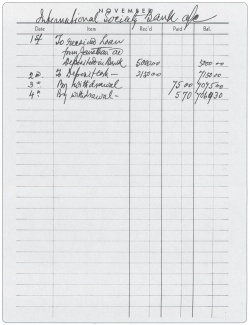 NOVEMBER
International Society Bank a/c
Date Item Rec'd Paid Bal.
14 To Loan
from
Deposited in Bank 5000 00 5000 00
2 To Deposit 2150 00 7150 00
3 By Withdrawal 75 00 7075 00
4 By withdrawal - 5 70 7069 30